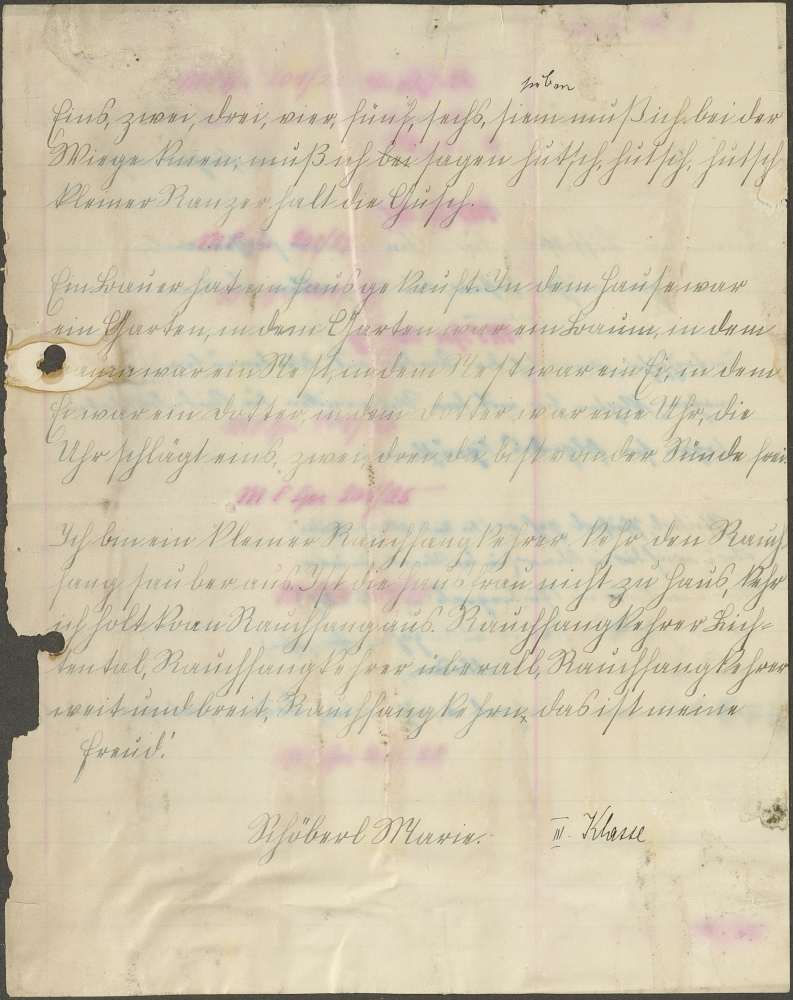 sieben
Eins, zwei, drei, vier, fünf, sechs, siem muß ich bei der
Wiege knien, muß ich bei sagen hutsch, hutsch, hutsch
kleiner Ranzer halt die Gusch.
Ein Bauer hat ein Haus gekauft. In dem Hause war
ein Garten, in dem Garten war ein Baum, in dem
war ein Nest, in dem Nest war ein Ei, in dem
Ei war ein Dotter, in dem Dotter war eine Uhr, die
Uhr schlägt eins, zwei, drei du bist von der Sünde frei.
Ich bin ein kleiner Rauchfangkehrer kehr den Rauch
fang sauber aus. Ist die Hausfrau nicht zu Haus, kehr
ich holt koan Rauchfang aus. Rauchfangkehrer Lich-
tental, Rauchfangkehrer überall, Rauchfangkehrer
weit und breit, Rauchfangkehrn, das ist meine
Freud!
Schöberl Marie. III. Klasse